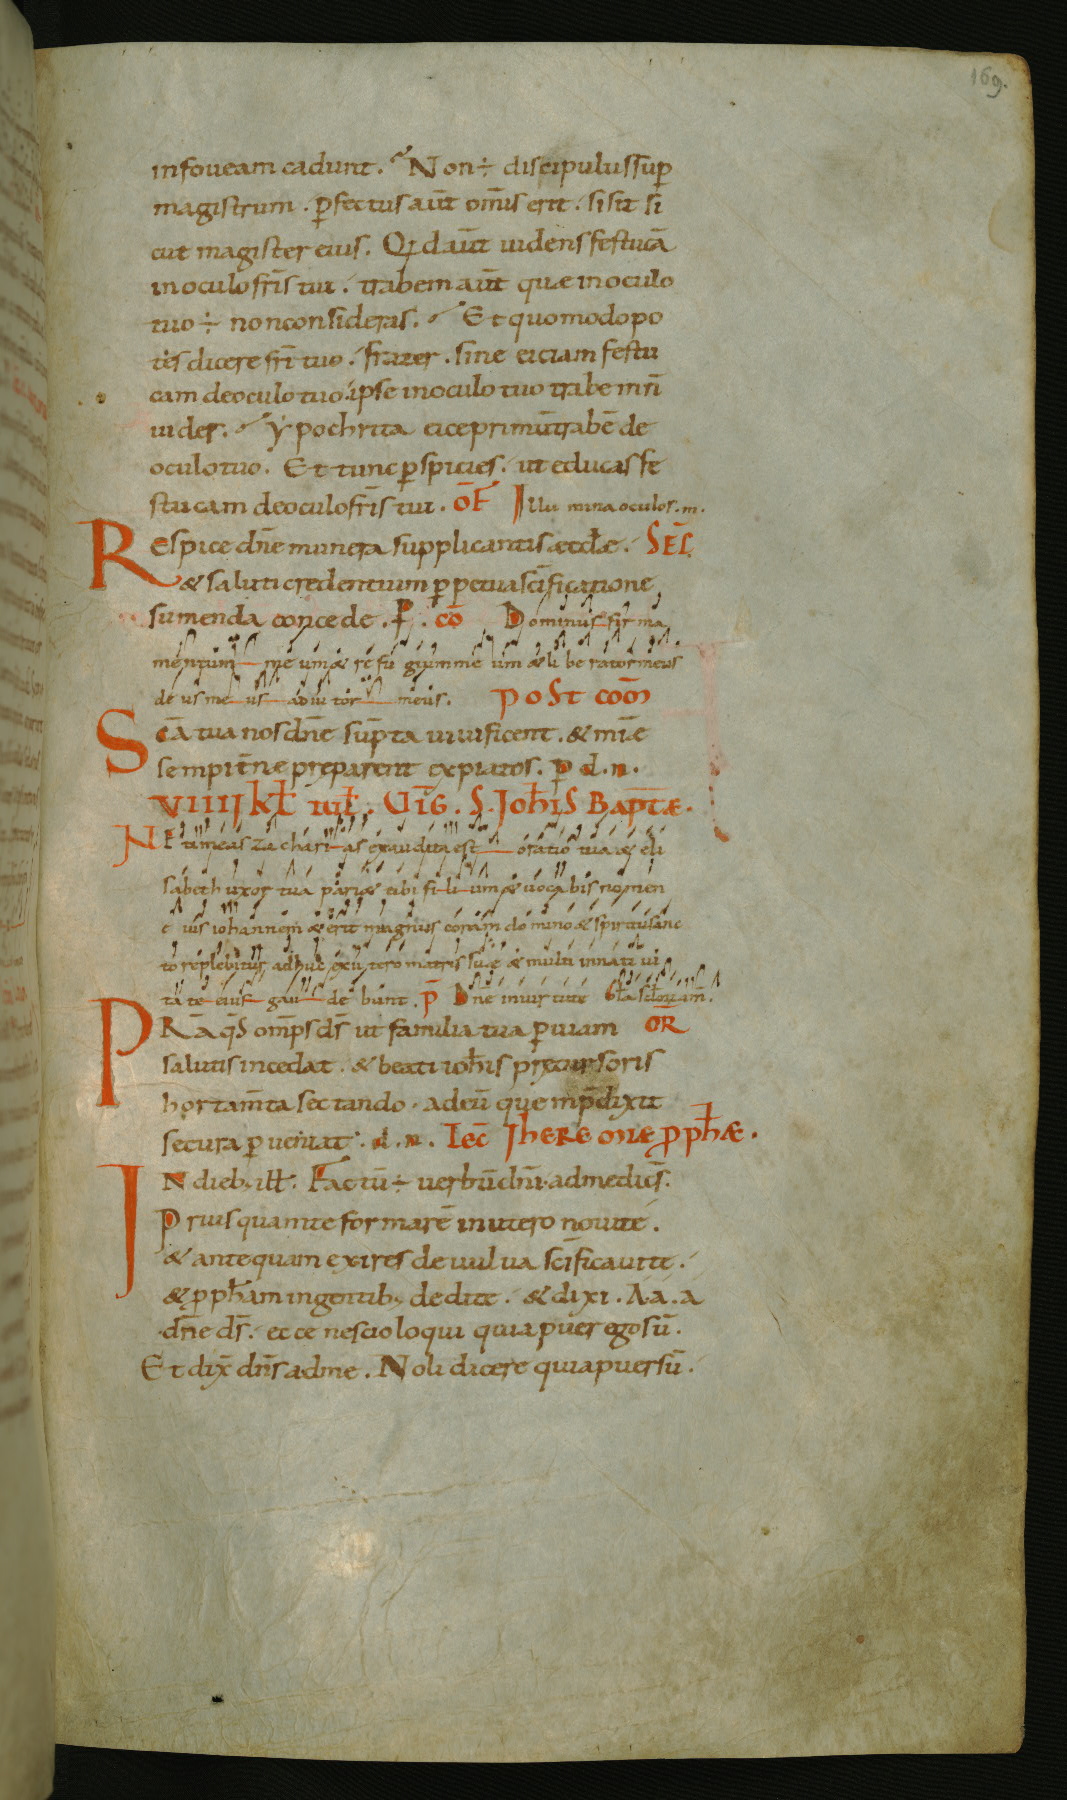 169.
in foueam cadunt. Non ÷ discipulus sup̄
magistrum. ꝑfectus aūt om̄is erit. si sit si
cut magister eius. Qd aūt uidens festucā
in oculo fr̄is tui. trabem aūt quae in oculo
tuo ÷ non consideras. Et quomodo po
tes dicere fr̄i tuo. frater. sine eiciam festu
cam de oculo tuo. ipse in oculo tuo trabem n̄
uides. Ypochrita eice primū trabē de
oculo tuo. Et tunc ꝑspicies. ut educas fe
stucam de oculo fr̄is tui. OF̄ Illumina oculos. m.
Respice dn̄e munera supplicantis aeccłae. SEC̄
& saluti credentium ꝑpetua sc̄ificatione
sumenda concede. P. CŌ Dominus firma
mentum me um & re fu gium me um & li be rator meus
de us me us adiu tor meus. POST COM̄
Scā tua nos dn̄e sūpta uiuificent. & mīe
sempit̄ne preparent expiatos. p d. n.
VIIII KŁ IUŁ. UIG. S. IOH̄IS BAPT̄AE.
NE timeas zacharias exaudita est oratio tua & eli
sabeth uxor tua pari& tibi fi li um & uocabis nomen
e ius iohannem & erit magnus coram domino & spiritu sanc
to replebitur adhuc ex utero matris suae & multi in natiui
ta te eius gau de bunt. P̄ Dn̄e in uirtute Gła scłorum am̄.
PRĀ q̄s om̄ps ds̄ ut familia tua ꝑ uiam OR̄
salutis incedat. & beati ioh̄is precursoris
hortam̄ta sectando. ad eū quem p̄dixit
secura ꝑueniat. d. n. Lec̄ Iheremiae ꝓph̄ae.
IN dieb; ilł. Factū ÷ uerbū dn̄i ad me dic̄s.
Priusquam te formarē in utero noui te.
& antequam exires de uulua sc̄ificaui te.
& ꝓph̄am in gentib; dedi te. & dixi. A. a. a
dn̄e ds̄. ecce nescio loqui quia puer ego sū.
Et dix̄ dn̄s ad me. Noli dicere quia puer sū.